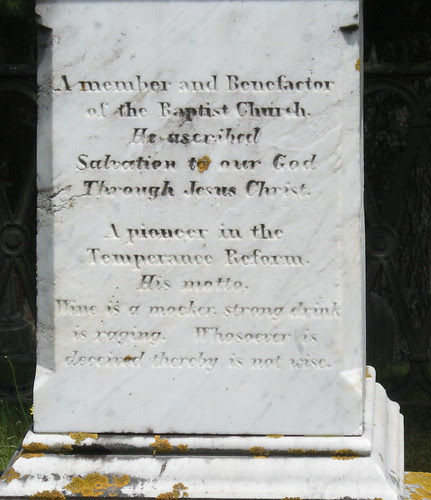 A member and Benefactor
of the Baptist Church.
He ascribed
Salvation to our God
Through Jesus Christ.
A pioneer in the
Temperance Reform.
His motto.
Wine is a mocker, strong drink
is raging. Whosoever is
deceived thereby is not wise.